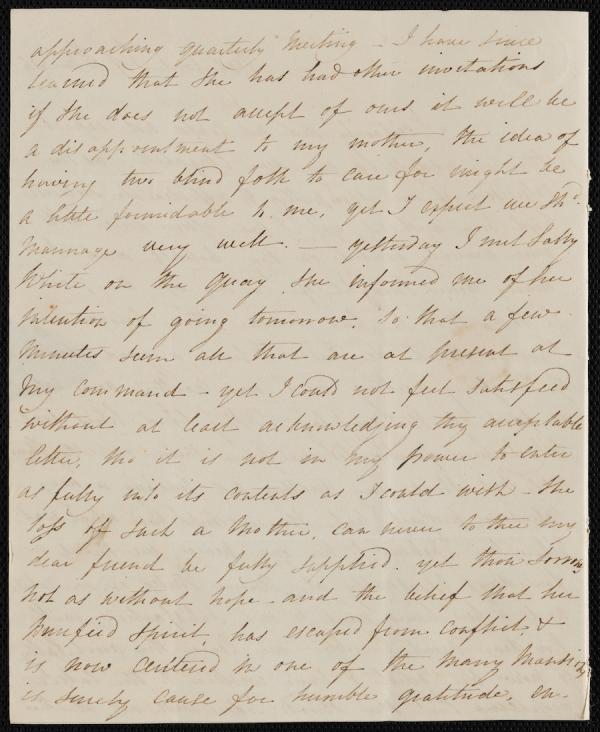 approaching quarterly Meeting - I have since
learned that she has had other invitations
if she does not accept of ours it will be
a disappointment to my mother, the idea of
having two blind folk to care for might be
a little formidable to me, yet I expect we shd.
mannage very well. — yesterday I met Sally
White on the Quay she informed me of her
intention of going tomorrow, so that a few
minutes seem all that are at present at
my command - yet I could not feel satisfied
without at least acknowledging thy acceptable
letter, tho it is not in my power to enter
as fully into its contents as I could wish - the
loss of such a Mother, can never to thee my
dear friend be fully supplied. yet thou sorrows
not as without hope - and the belief that her
purified spirit, has escaped from conflict, &
is now centered in one of the many mansions
is surely cause for humble gratitude, en-